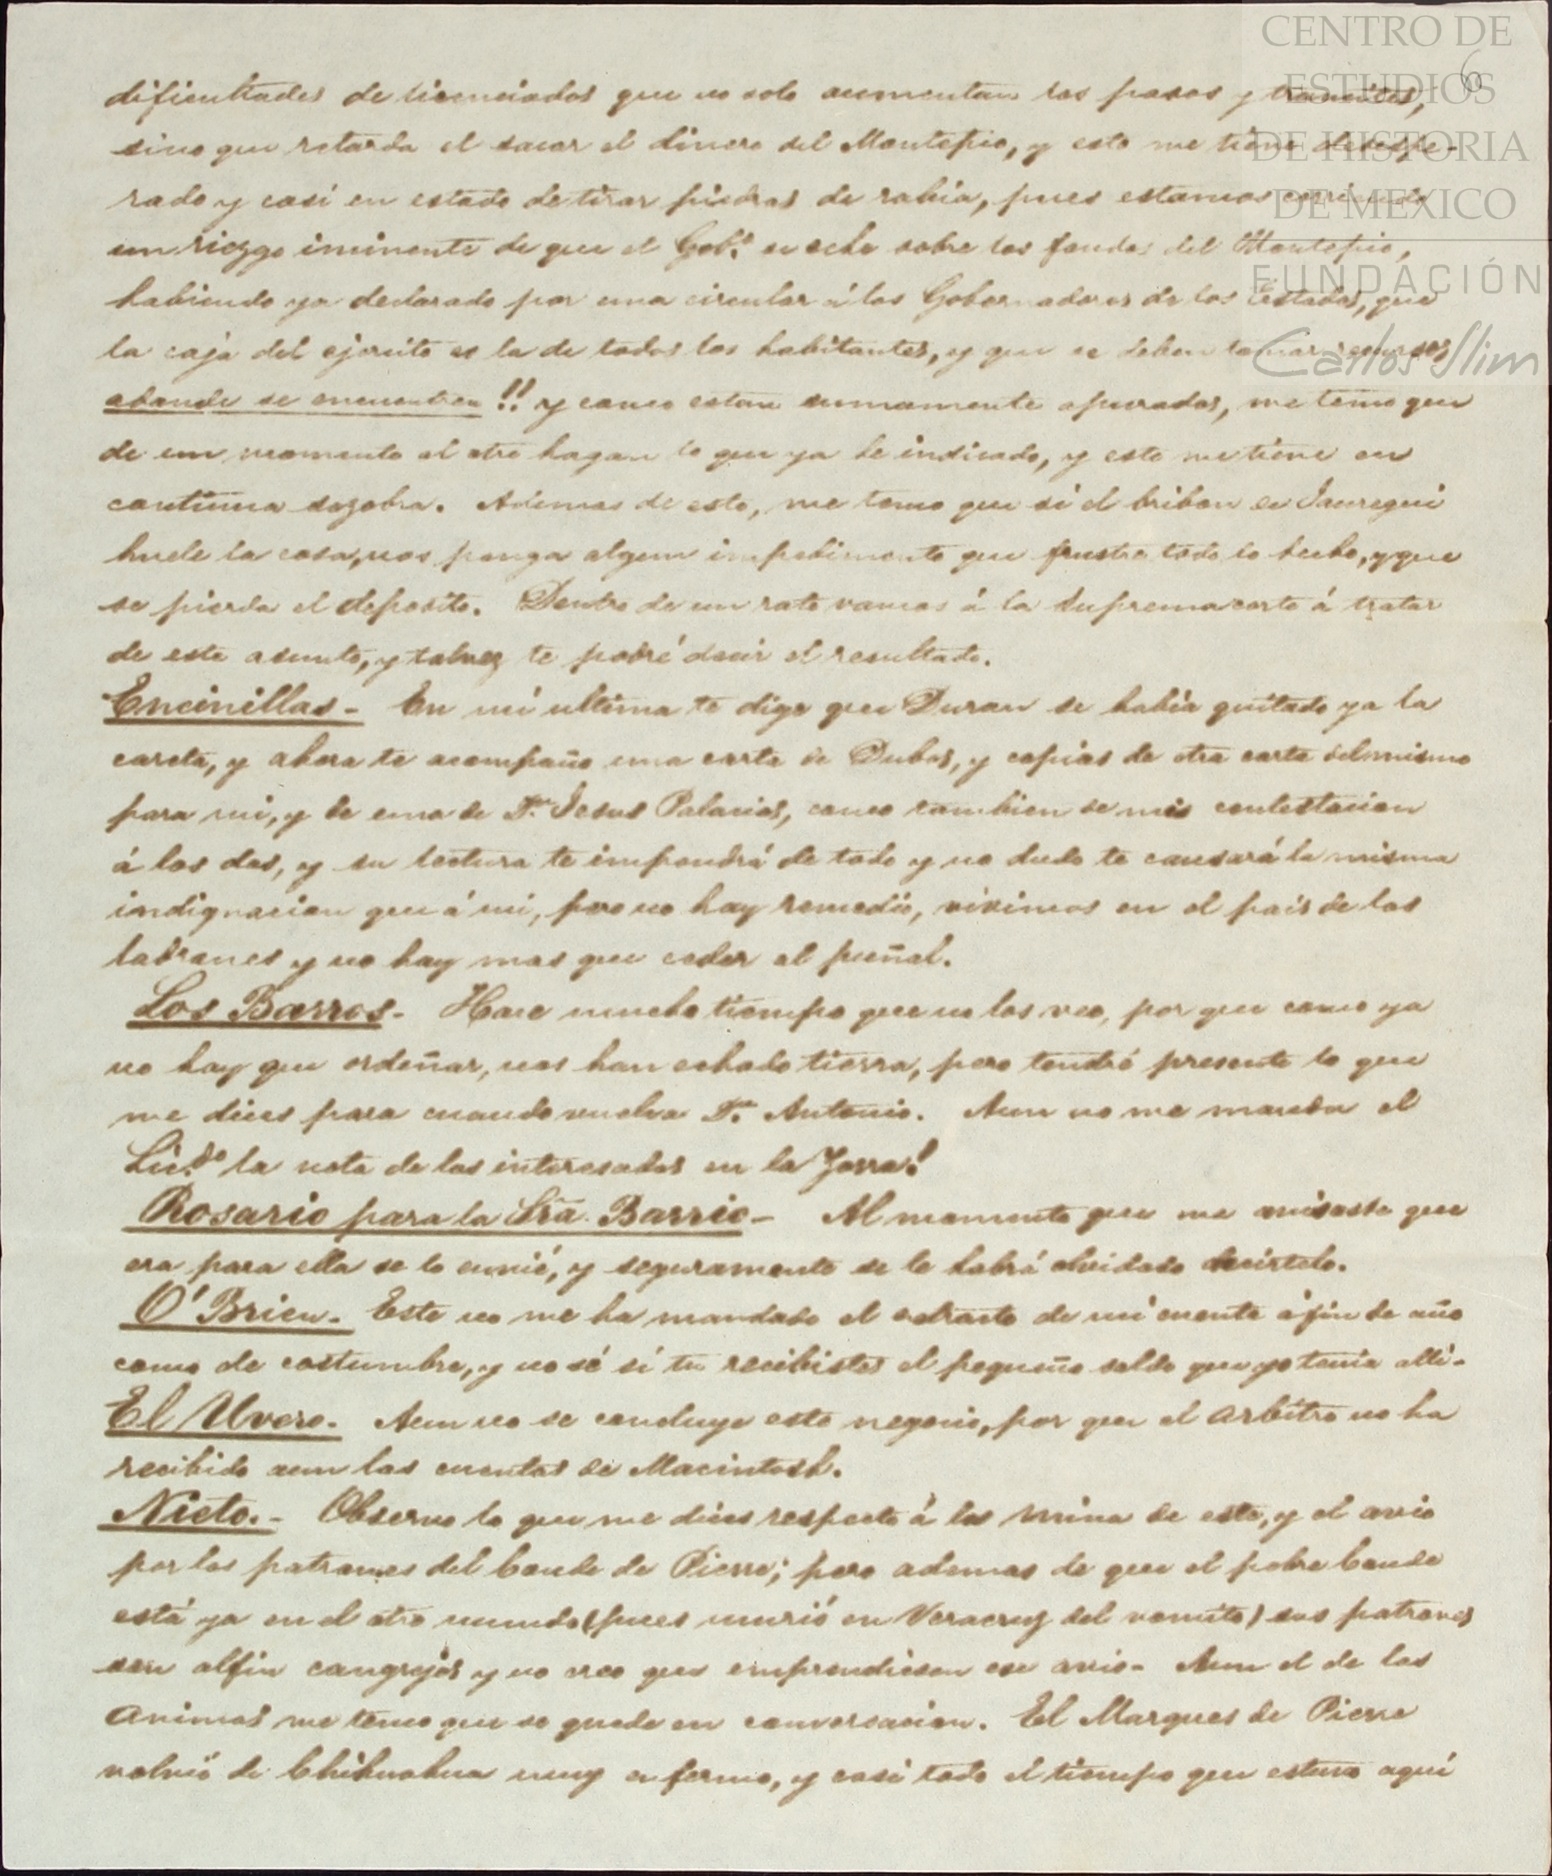 CENTRO DE
ESTUDIOS
DE HISTORIA
DE MEXICO
FUNDACIÓN
Carlos Slim
6
dificultades de licenciados que no solo aumentan los pasos y tramites,
sino que retarda el sacar el dinero del Montepio, y esto me tiene desespe-
rado y casi en estado de tirar piedras de rabia, pues estamos corriendo
un riezgo iminente de que el Gob.º se eche sobre los fondos del Montepio,
habiendo ya declarado por una circular á los Gobernadores de los Estados, que
la caja del ejercito es la de todos los habitantes, y que se deben tomar recursos
adonde se encuentren!! y como estan sumamente apurados, me temo que
de un momento al otro hagan lo que ya he indicado, y esto me tiene en
continua zozobra. Ademas de esto, me temo que si el bribon de Jauregui
huele la cosa, nos ponga algun impedimento que frustre todo lo hecho, y que
se pierda el deposito. Dentro de un rato vamos á la Suprema corte á tratar
de este asunto, y talvez te podré decir el resultado.
Encinillas - En mi ultima te dige que Duran se habia quitado ya la
careta, y ahora te acompaño una carta de Dubos, y copias de otra carta del mismo
para mi, y de una de Dn. Jesus Palacios, como tambien de mis contestacion
á los dos, y su lectura te impondrá de todo y no dudo te causará la misma
indignacion que á mi, pero no hay remedio, vivimos en el pais de los
ladrones y no hay mas que ceder al puñal.
Los Barros - Hace mucho tiempo que no los veo, por que como ya
no hay que ordeñar, nos han echado tierra, pero tendré presente lo que
me dices para cuando vuelva Dn. Antonio. Aun no me manda el
Licdo la nota de los interesados en la Zorra!
Rosario para la Sra. Barrio - Al momento que me avisaste que
era para ella se lo envié, y seguramente se le habrá olvidado decirtelo.
O'Brien. Este no me ha mandado el extracto de mi cuenta á fin de año
como de costumbre, y no sé si tu recibistes el pequeño saldo que yo tenia alli -
El Uvero. Aun no se concluye este negocio, por que el arbitro no ha
recibido aun las cuentas de Macintosh.
Nieto. - Observo lo que me dices respecto á la mina de este, y el avio
por los patrones del Conde de Pierre; pero ademas de que el pobre Conde
está ya en el otro mundo (pues murió en Veracruz del vomito) sus patrones
son alfin cangrejos y no creo que emprendiesen ese avio - Aun el de las
Animas me temo que se quede en conversacion. El Marques de Pierre
volvió de Chihuahua muy enfermo, y casi todo el tiempo que estuvo aquí